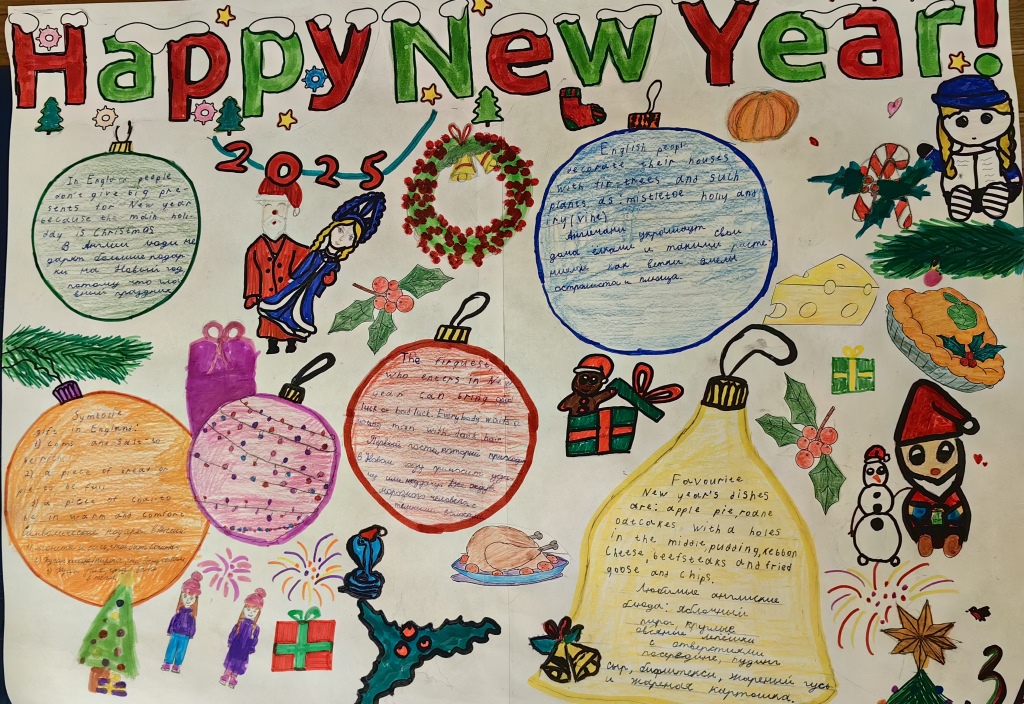 Happy New Year!
2025
In English people
don't give big pre-
sents for New year
because the main holi-
day is Christmas
В Англии люди не
дарят большие подар
ки на Новый год
потому что
праздник
English people
decorate their houses
with fir-trees and such
plants as mistletoe holly and
ivy (vine)
Англичани украшают свои
дома елками и такими расте
ниями как ветки омелы
остролиста и плюща
The first guest
who enters in New
year can bring good
luck or bad luck. Everybody waits a
young man with dark hair
Первый гость, который приходит
в Новом году приносит удачу
или неудачу. Все ждут
молодого человека
с темными волосами
Symbolic
gifts in England:
1) coins and salt-to
be rich
2) a piece of bread or
to be full
3) a piece of coal-to
be in warm and comfort
Символический подарок в Англии
Favourite
New year's dishes
are: apple pie, round
oatcakes with a holes
in the middle, pudding, Kebbon
Cheese, beefsteaks and fried
goose and chips.
Любимые английские
блюда: яблочный
пирог круглые
овсяные лепешки
с отверстиями
посередине, пудинг
сыр, бифштексы, жареный гусь
и жареная картошка.
3